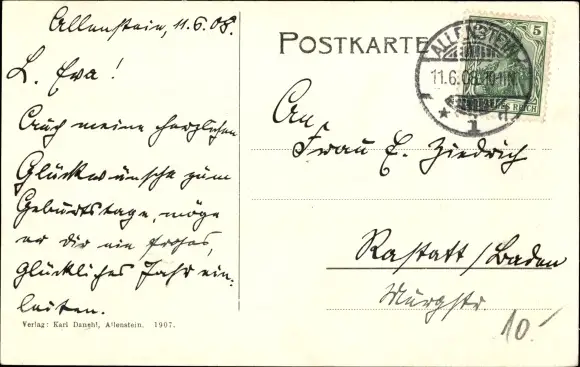 Allenstein, 11.6.08.
L. Eva!
Auch meine herzlichen
Glückwünsche zum
Geburtstage, möge
er dir ein frohes,
glückliches Jahr ein-
leiten.
Verlag: Karl Danehl, Allenstein. 1907.
POSTKARTE
ALLENSTEIN
11.6.08. 10-11N
* 1 d.
5
REICH
An
Frau E. Ziedrich
Rastatt/Baden
Murgstr.
10.-